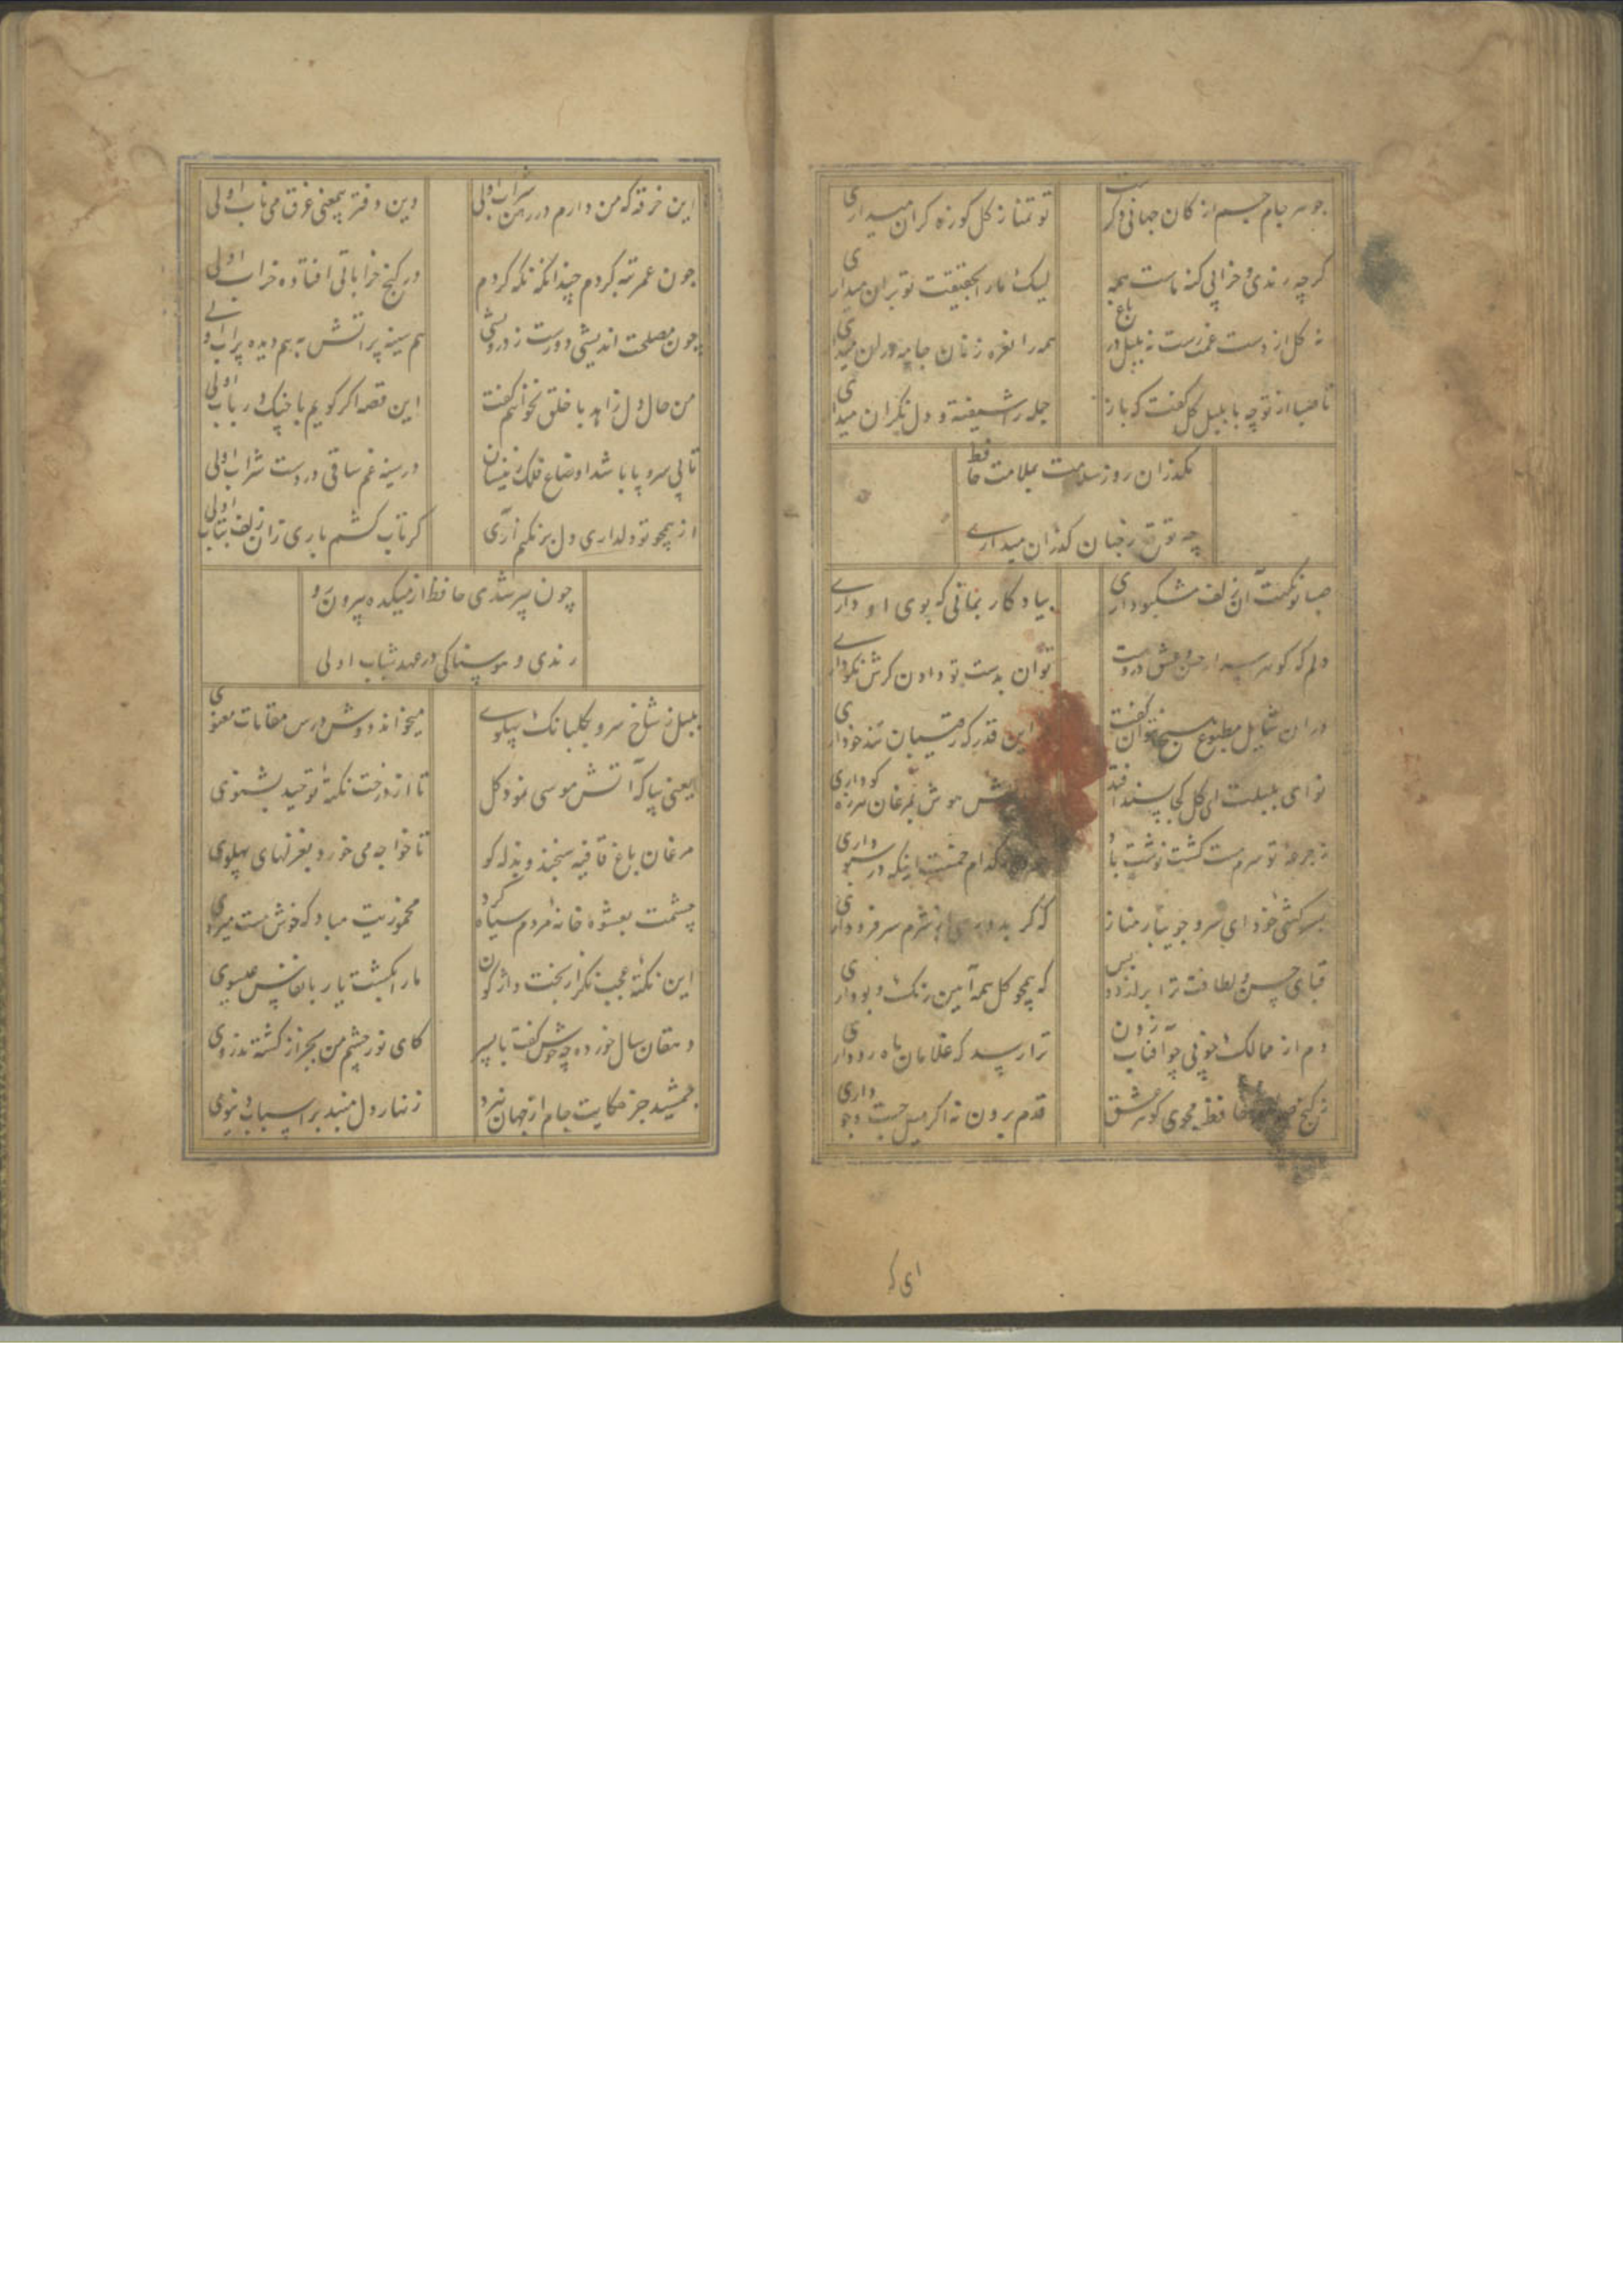 جوهر جام جم از کان جهانی دکرست
تو تمنا ز کل کوزه کران میداری
کرچه رندی و خرابی کنه ماست همه
لیک
بحقیقت تو بران میداری
نه کل از دست غمت رست نه بلبل در باغ
همه را نعره زنان جامه دران میداری
تا صبا از تو چه با بلبل کل کفت که باز
جمله را شیفته و دل نکران میداری
مکذران روز سلامت بملامت حافظ
چه توقع ز جهان کذران میداری
صبا تو نکهت آن زلف مشکبو داری
بیادکار بمانی که بوی او داری
دلم که کوهر اسرار حسن و عشق دروست
توان بدست تو دادن کرش نکو داری
دران شمایل مطبوع هیچ نتوان کفت
این قدر که رقیبان تندخو داری
نوای بلبلت ای کل کجا پسند افتد
هوش بمرغان هرزه کو داری
ز جرعه تو سرم مست کشت نوشت باد
کدام خمست اینکه در سبو داری
بسرکشی خود ای سرو جویبار مناز
که کر بدو رسی از شرم سر فرو داری
قبای حسن و لطافت ترا برازد و بس
که همچو کل همه آیین رنک و بو داری
دم از ممالک خوبی چو افتاب زدن
ترا رسد که غلامان ماه رو داری
ز کنج حافظ مجوی کوهر عشق
قدم برون نه اکر میل جست و جو داری
این خرقه که من دارم در رهن شراب اولی
وین دفتر بیمعنی غرق می ناب اولی
چون عمر تبه کردم چندانکه نکه کردم
در کنج خراباتی افتاده خراب اولی
چون مصلحت اندیشی دورست ز درویشی
هم سینه پر اتش به هم دیده پر اب اولی
من حال دل زاهد با خلق نخواهم کفت
این قصه اکر کویم با چنک و رباب اولی
تا بی سر و پا باشد اوضاع فلک زینسان
در سینه غم ساقی در دست شراب اولی
از همچو تو دلداری دل برنکنم آری
کر تاب کشم باری زان زلف بتاب اولی
چون پیر شدی حافظ از میکده بیرون رو
رندی و هوسناکی در عهد شباب اولی
بلبل ز شاخ سرو بکلبانک پهلوی
میخواند دوش درس مقامات معنوی
یعنی بیا که آتش موسی نمود کل
تا از درخت نکتۀ توحید بشنوی
مرغان باغ قافیه سنجند و بذله کو
تا خواجه می خورد بغزلهای پهلوی
چشمت بعشوه خانۀ مردم سیاه کرد
مخموریت مباد که خوش مست میروی
این نکتۀ عجب نکر از بخت واژکون
مارا بکشت یار بانفاس عیسوی
دهقان سال خورده چه خوش کفت با پسر
کای نور چشم من بجز از کشته ندروی
جمشید جز حکایت جام از جهان نبرد
زنهار دل مبند بر اسباب دنیوی